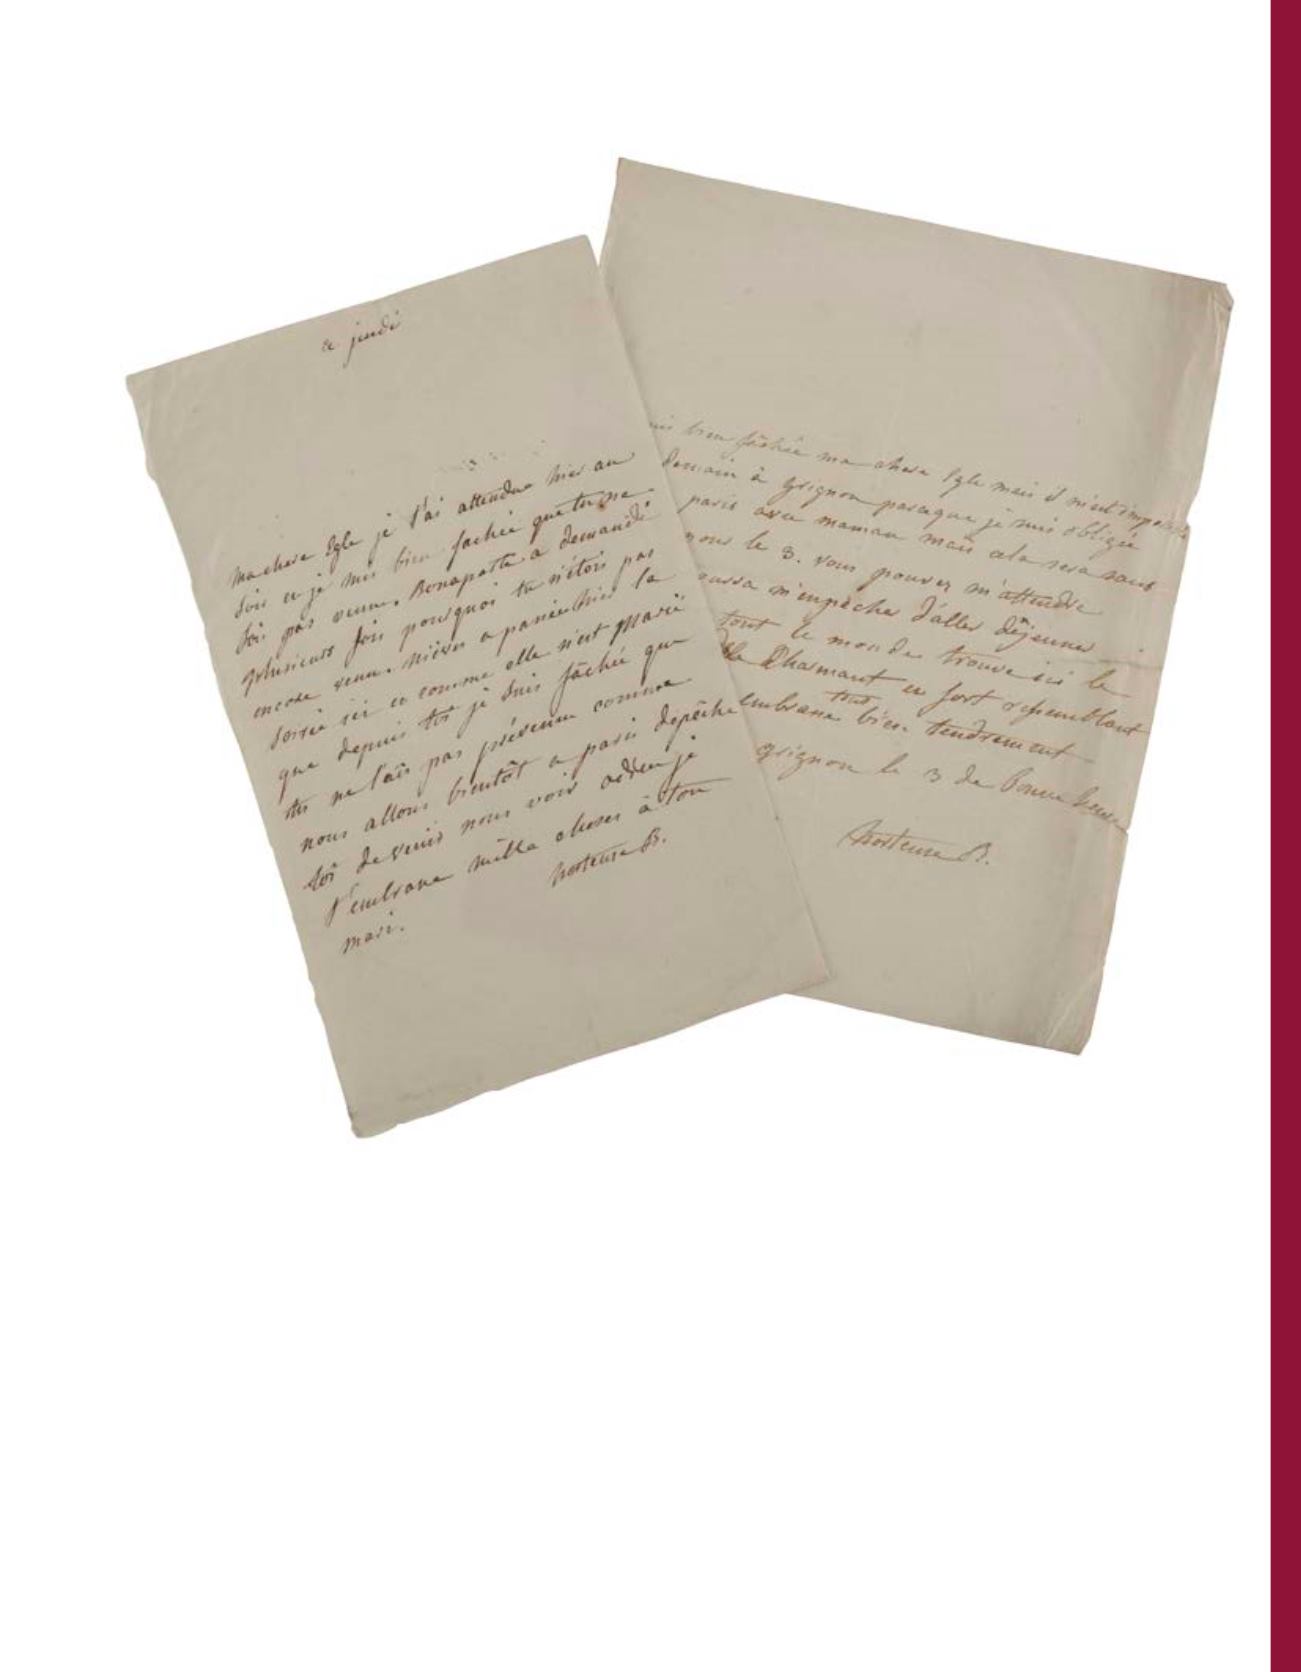 ce jeudi
ma chere Eglé je t'ai attendue hier au
soir et je suis bien fachée que tu ne
sois pas venue. Bonaparte a demandé
plusieurs fois pourquoi tu n'étois pas
encore venu. nièves a passée hier la
soirée ici et comme elle n'est marié
que depuis toi je suis fâchée que
tu ne l'ais pas prévenue comme
nous allons bientôt a paris dépêche
toi de venir nous voir adieu je
t'embrasse mille choses à ton
mari.
hortense B.
suis bien fâchée ma chere Eglé mais il m'est impossible
demain à grignon parceque je suis obligée
paris avec maman mais cela sera sans
pour le 3. vous pouvez m'attendre
poura m'empêcher d'aller déjeuner
tout le monde trouve ici le
Charmant et fort ressemblant
embrasse tout bien tendrement
grignon le 3 de bonne heure
hortense B.